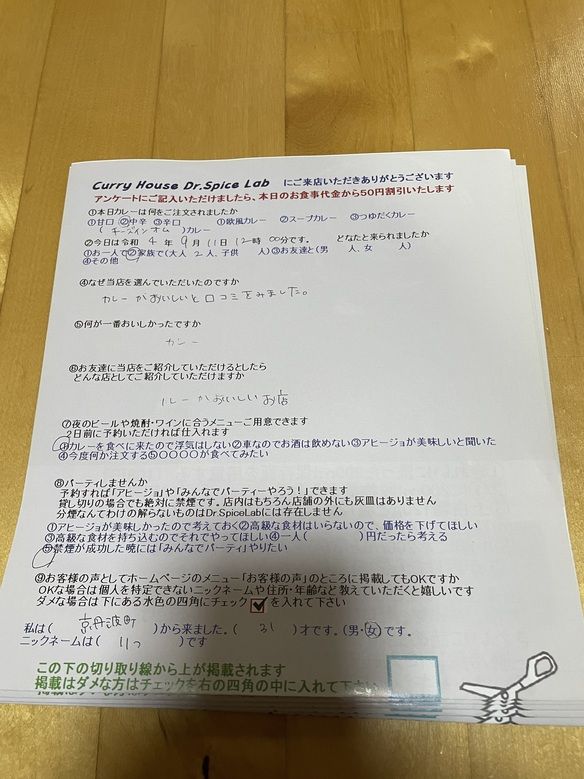 Curry House Dr.Spice Lab にご来店いただきありがとうございます
アンケートにご記入いただけましたら、本日のお食事代金から50円割引いたします
①本日カレーは何をご注文されましたか
①甘口 ②中辛 ③辛口 ①欧風カレー ②スープカレー ③つゆだくカレー
(チーズインオム)カレー
②今日は令和 4 年 9月 11日 12時 00分です。 どなたと来られましたか
①お一人で②家族で(大人 2人、子供 人)③お友達と(男 人、女 人)
④その他
④なぜ当店を選んでいただいたのですか
カレーがおいしいと口コミをみました。
⑤何が一番おいしかったですか
カレー
⑥お友達に当店をご紹介していただけるとしたら
どんな店としてご紹介していただけますか
カレーがおいしいお店
⑦夜のビールや焼酎・ワインに合うメニューご用意できます
2日前に予約いただければ仕入れます
①カレーを食べに来たので浮気はしない②車なのでお酒は飲めない③アヒージョが美味しいと聞いた
④今度何か注文する⑤〇〇〇〇が食べてみたい
⑧パーティしませんか
予約すれば「アヒージョ」や「みんなでパーティーやろう!」できます
貸し切りの場合でも絶対に禁煙です。店内はもちろん店舗の外にも灰皿はありません
分煙なんてわけの解らないものはDr.SpiceLabには存在しません
①アヒージョが美味しかったので考えておく②高級な食材はいらないので、価格を下げてほしい
③高級な食材を持ち込むのでそれでやってほしい④一人( )円だったら考える
⑤禁煙が成功した暁には「みんなでパーティ」やりたい
⑨お客様の声としてホームページのメニュー「お客様の声」のところに掲載してもOKですか
OKな場合は個人を特定できないニックネームや住所・年齢など教えていただくと嬉しいです
ダメな場合は下にある水色の四角にチェック を入れて下さい
私は( 京丹波町 )から来ました。( 31 )才です。(男・女)です。
ニックネームは( りっ )です
この下の切り取り線から上が掲載されます
掲載はダメな方はチェックを右の四角の中に入れて下さい